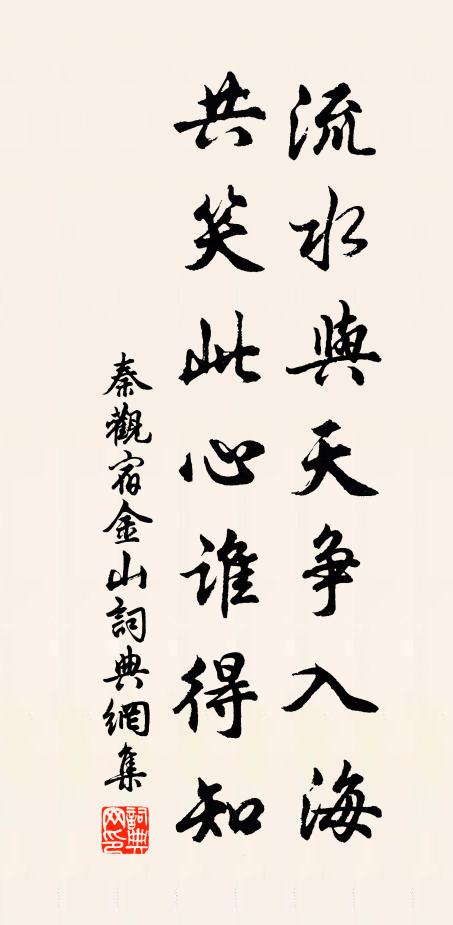 流水與天争入海
共笑此心誰得知
秦觀宿金山詞典網集
詞典網印